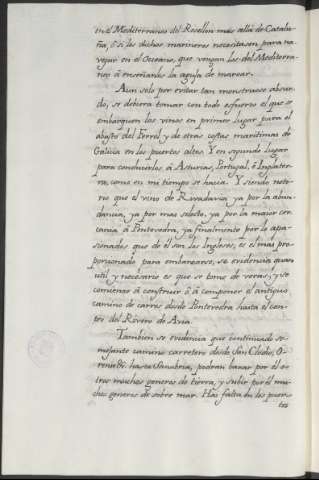 en el Mediterraneo del Rosellon mas allá de Catalu-
ña, ó si los dichos marineros necesitasen para na-
vegar en el Oceano, que vengan los del Mediterra-
neo á enseñarles la aguja de marear.
Aun solo por evitar tan menstruoso absur-
do, se debiera tomar con todo esfuerzo el que se
embarquen los vinos en primer lugar para el
abasto del Ferrol y de otras costas maritimas de
Galicia en los puertos altos. Y en segundo lugar
para conducirlos á Asturias, Portugal, ó Inglater-
ra, como en mi tiempo se hacia. Y siendo noto-
rio que el vino de Rivadavia ya por la abun-
dancia, ya por mas selecto, ya por la mayor cer-
cania á Pontevedra, ya finalmente por lo apa-
sionados que de él son los Ingleses, es el mas pro-
porcionado para embarcarse, se evidencia quan
util y necesario es que se tome de veras, y se
comienze á construir ó á componer el antiguo
camino de carros desde Pontevedra hasta el cen-
tro del Rivero de Avia.
Tambien se evidencia que continuado se-
mejante camino carretero desde San Clodio, O-
rense &c. hasta Sanabria, podran baxar por él o-
tros muchos generos de tierra, y subir por él mu-
chos generos de sobre mar. Hai falta en los puer-
tos